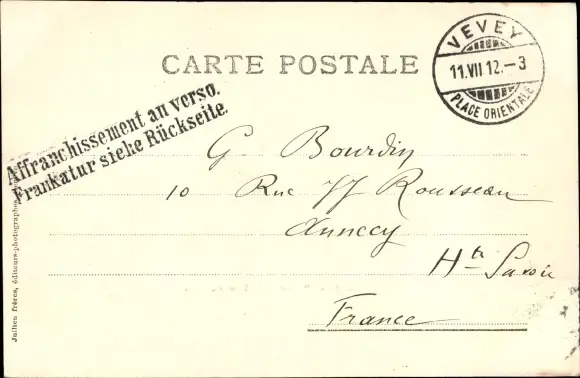 CARTE POSTALE
VEVEY
11.VII 12.-3
PLACE ORIENTALE
Affranchissement au verso.
Frankatur siehe Rückseite.
G. Bourdin
10 Rue JJ Rousseau
Annecy
Hte Savoie
France
Jullien frères, éditeurs-photographes